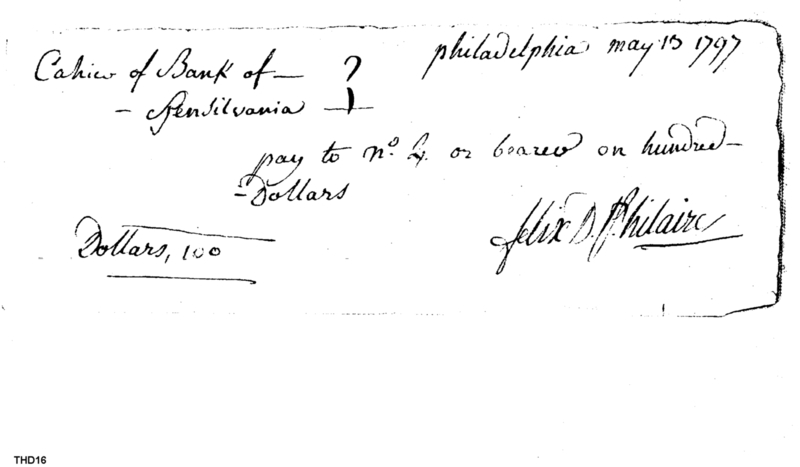 philadelphia may 13 1797
Cahier of Bank of —
— Pensilvania —
pay to no. 4. or bearer on hundred —
= Dollars
Dollars, 100
felix D. St hilaire
THD16